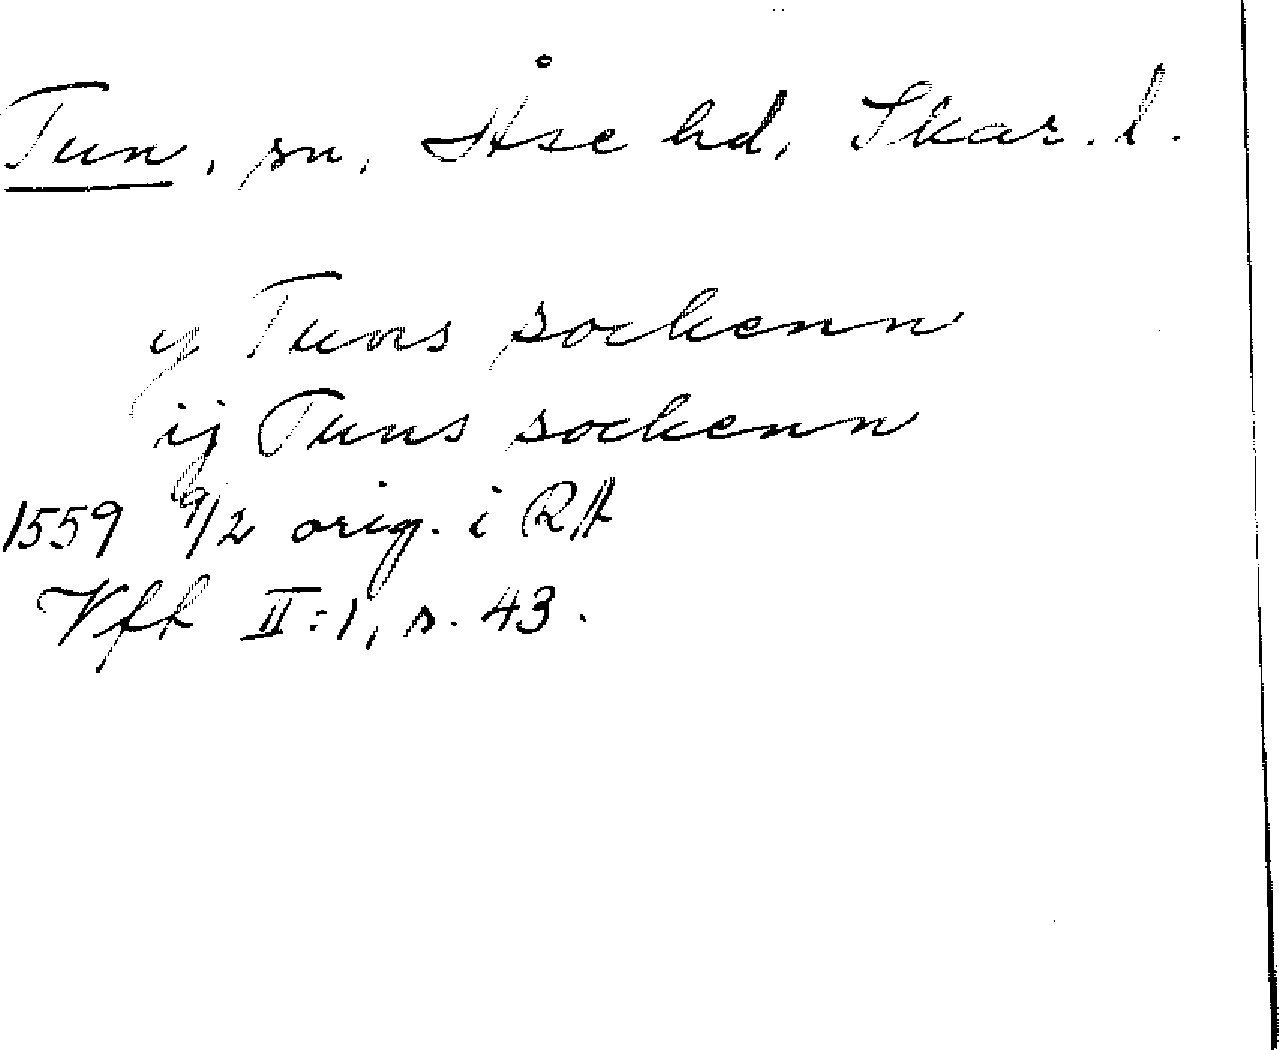 Tun, sn, Åse hd, Skar. l.
y Tuns sockenn
ij Tuns sockenn
1559 9/2 orig. i RA
Vff II:1, s. 43.